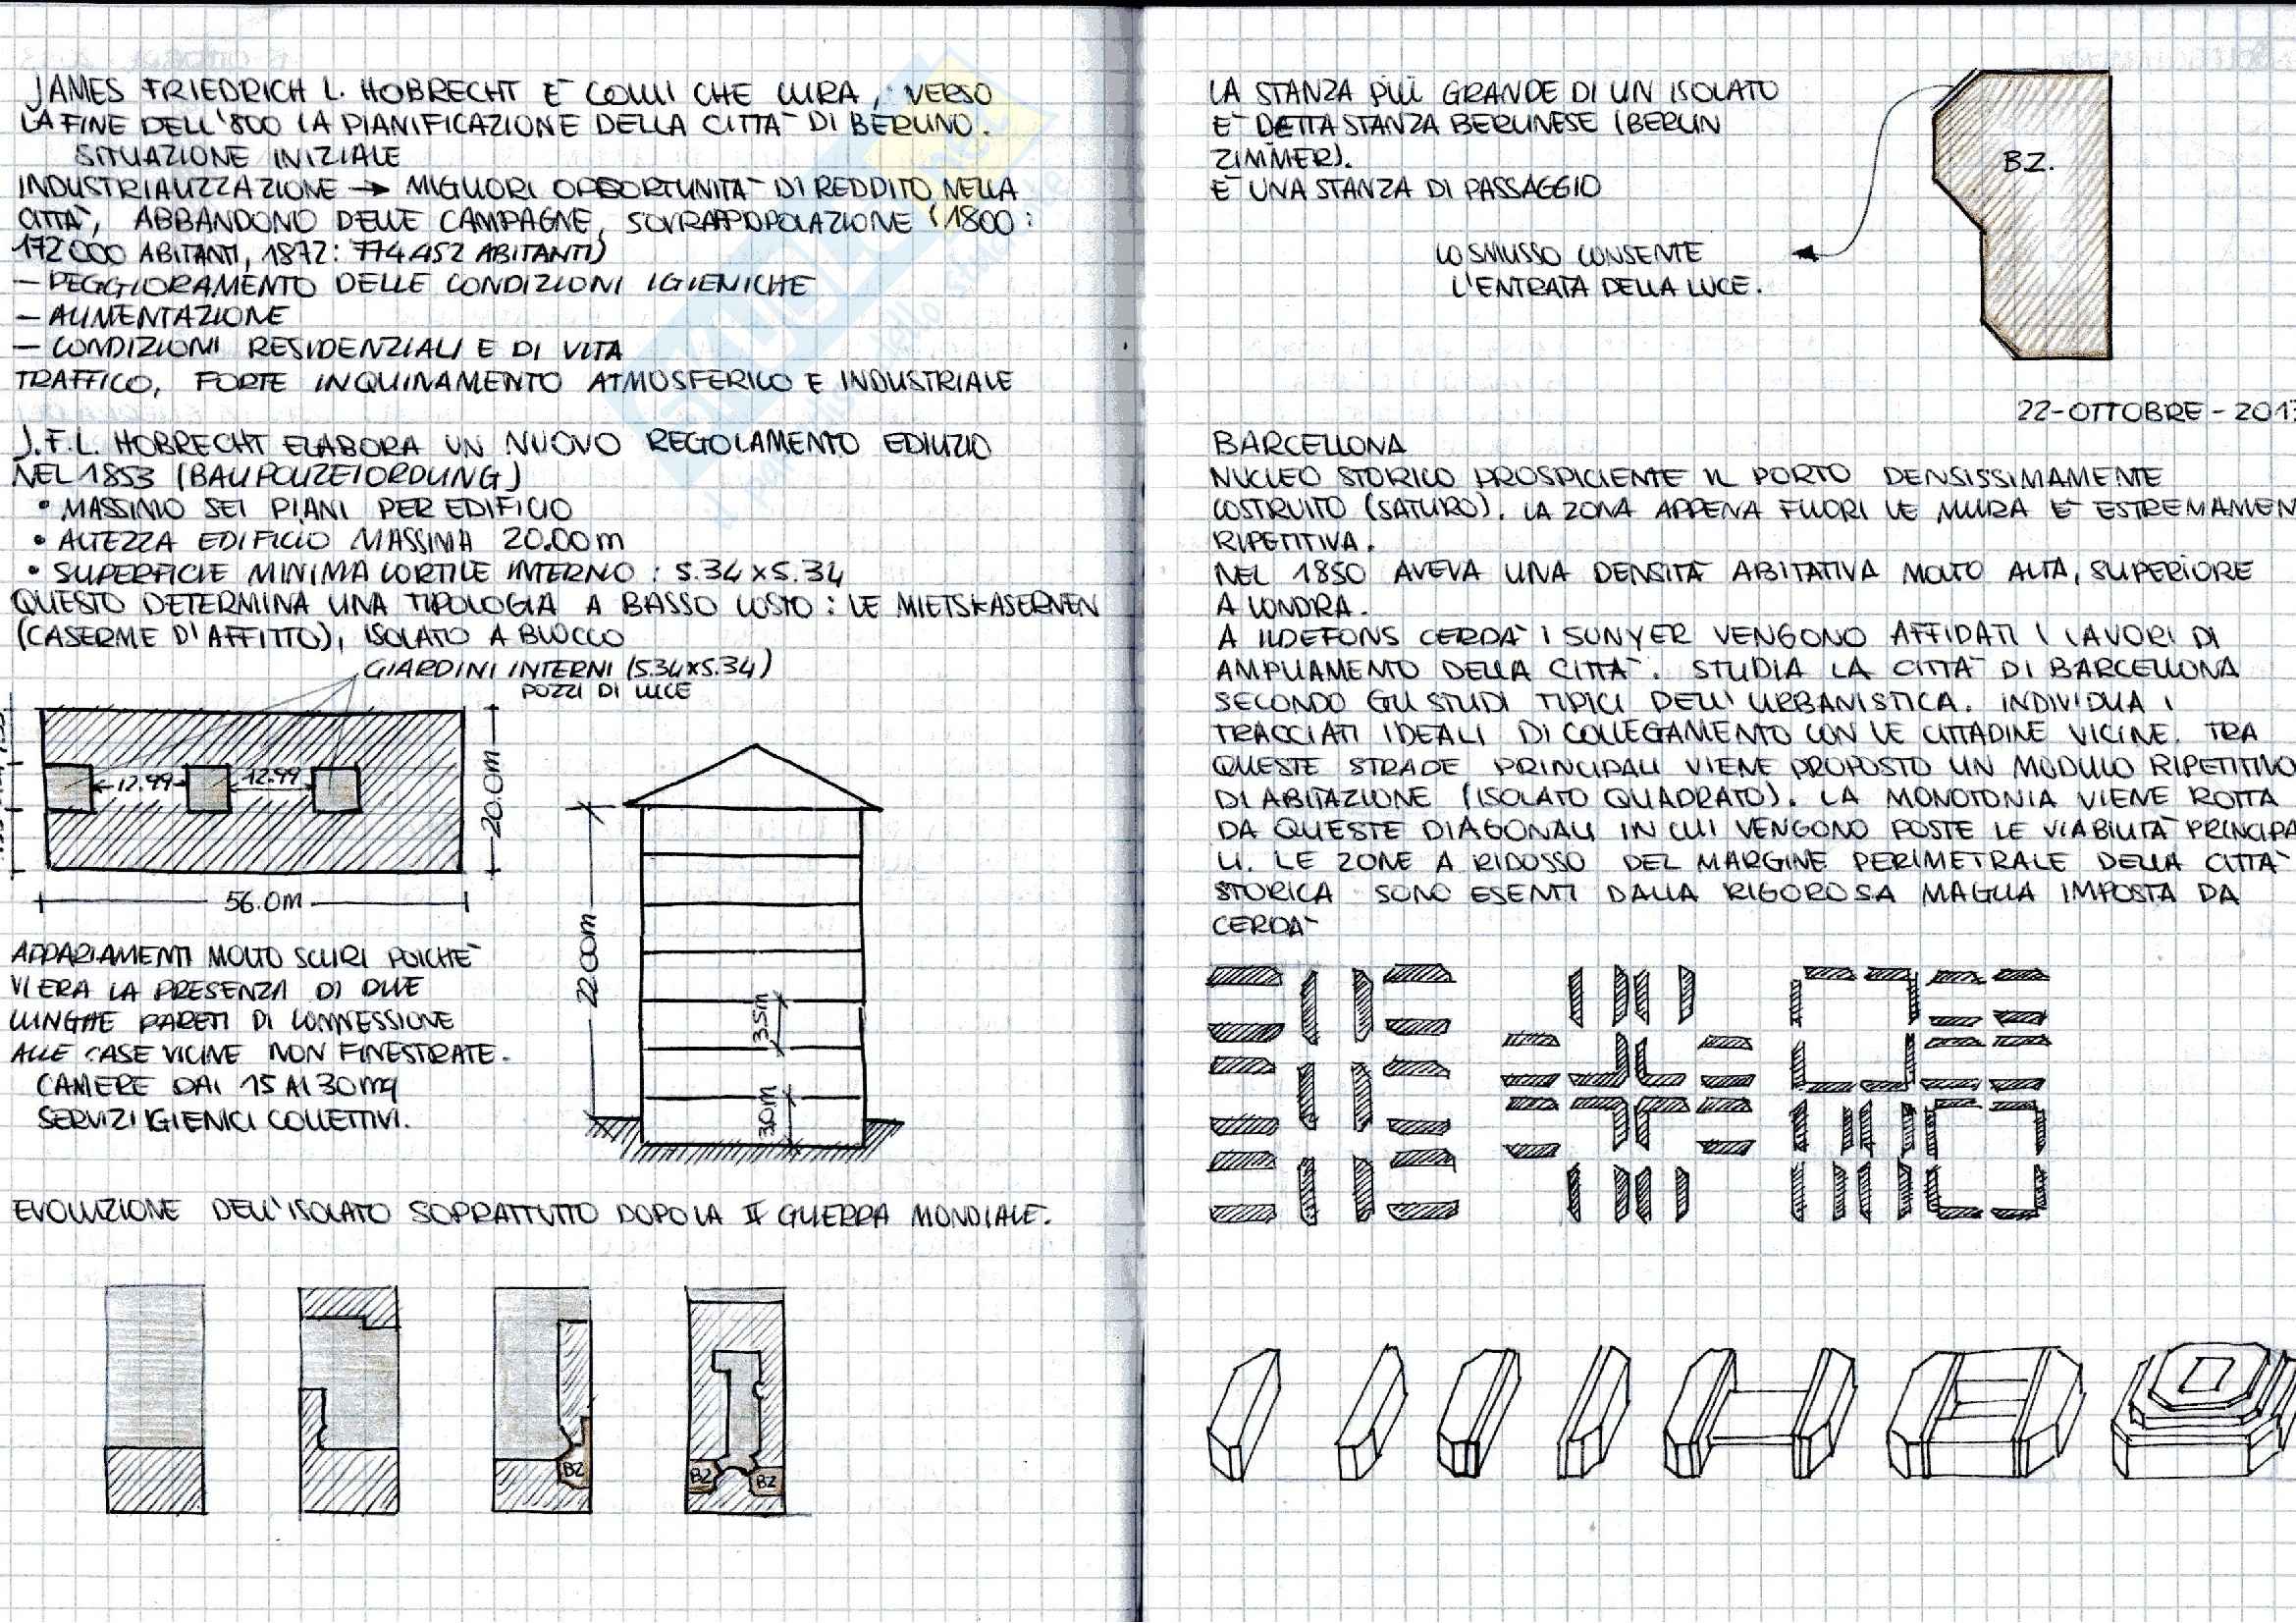 JAMES FRIEDRICH L. HOBRECHT E' COLUI CHE CURA, VERSO
LA FINE DELL'800 LA PIANIFICAZIONE DELLA CITTA' DI BERLINO.
SITUAZIONE INIZIALE
INDUSTRIALIZZAZIONE → MIGLIORI OPPORTUNITA' DI REDDITO NELLA
CITTA', ABBANDONO DELLE CAMPAGNE, SOVRAPPOPOLAZIONE (1800:
172000 ABITANTI, 1872: 774452 ABITANTI)
- PEGGIORAMENTO DELLE CONDIZIONI IGIENICHE
- ALIMENTAZIONE
- CONDIZIONI RESIDENZIALI E DI VITA
TRAFFICO, FORTE INQUINAMENTO ATMOSFERICO E INDUSTRIALE
J.F.L. HOBRECHT ELABORA UN NUOVO REGOLAMENTO EDILIZIO
NEL 1853 (BAUPOLIZEIORDUNG)
• MASSIMO SEI PIANI PER EDIFICIO
• ALTEZZA EDIFICIO MASSIMA 20.00m
• SUPERFICIE MINIMA CORTILE INTERNO: 5.34x5.34
QUESTO DETERMINA UNA TIPOLOGIA A BASSO COSTO: LE MIETSKASERNEN
(CASERME D'AFFITTO), ISOLATO A BLOCCO
GIARDINI INTERNI (5.34x5.34)
POZZI DI LUCE
12.99
12.99
20.0m
56.0m
22.00m
3.5m
3.0m
APPARTAMENTI MOLTO SCURI POICHE'
VI ERA LA PRESENZA DI DUE
LUNGHE PARETI DI CONNESSIONE
ALLE CASE VICINE NON FINESTRATE.
CAMERE DAI 15 AI 30mq
SERVIZI IGIENICI COLLETTIVI.
EVOLUZIONE DELL'ISOLATO SOPRATTUTTO DOPO LA II GUERRA MONDIALE.
BZ
BZ
BZ
LA STANZA PIÙ GRANDE DI UN ISOLATO
E' DETTA STANZA BERLINESE (BERLIN
ZIMMER).
E' UNA STANZA DI PASSAGGIO
BZ.
LO SMUSSO CONSENTE
L'ENTRATA DELLA LUCE.
22-OTTOBRE-2013
BARCELLONA
NUCLEO STORICO PROSPICIENTE IL PORTO DENSISSIMAMENTE
COSTRUITO (SATURO). LA ZONA APPENA FUORI LE MURA E' ESTREMAMEN
RIPETITIVA.
NEL 1850 AVEVA UNA DENSITA' ABITATIVA MOLTO ALTA, SUPERIORE
A LONDRA.
A ILDEFONS CERDA' I SUNYER VENGONO AFFIDATI I LAVORI DI
AMPLIAMENTO DELLA CITTA'. STUDIA LA CITTA' DI BARCELLONA
SECONDO GLI STUDI TIPICI DELL'URBANISTICA. INDIVIDUA I
TRACCIATI IDEALI DI COLLEGAMENTO CON LE CITTADINE VICINE. TRA
QUESTE STRADE PRINCIPALI VIENE PROPOSTO UN MODULO RIPETITIVO
DI ABITAZIONE (ISOLATO QUADRATO). LA MONOTONIA VIENE ROTTA
DA QUESTE DIAGONALI IN CUI VENGONO POSTE LE VIABILITA' PRINCIPA
LI. LE ZONE A RIDOSSO DEL MARGINE PERIMETRALE DELLA CITTA'
STORICA SONO ESENTI DALLA RIGOROSA MAGLIA IMPOSTA DA
CERDA'